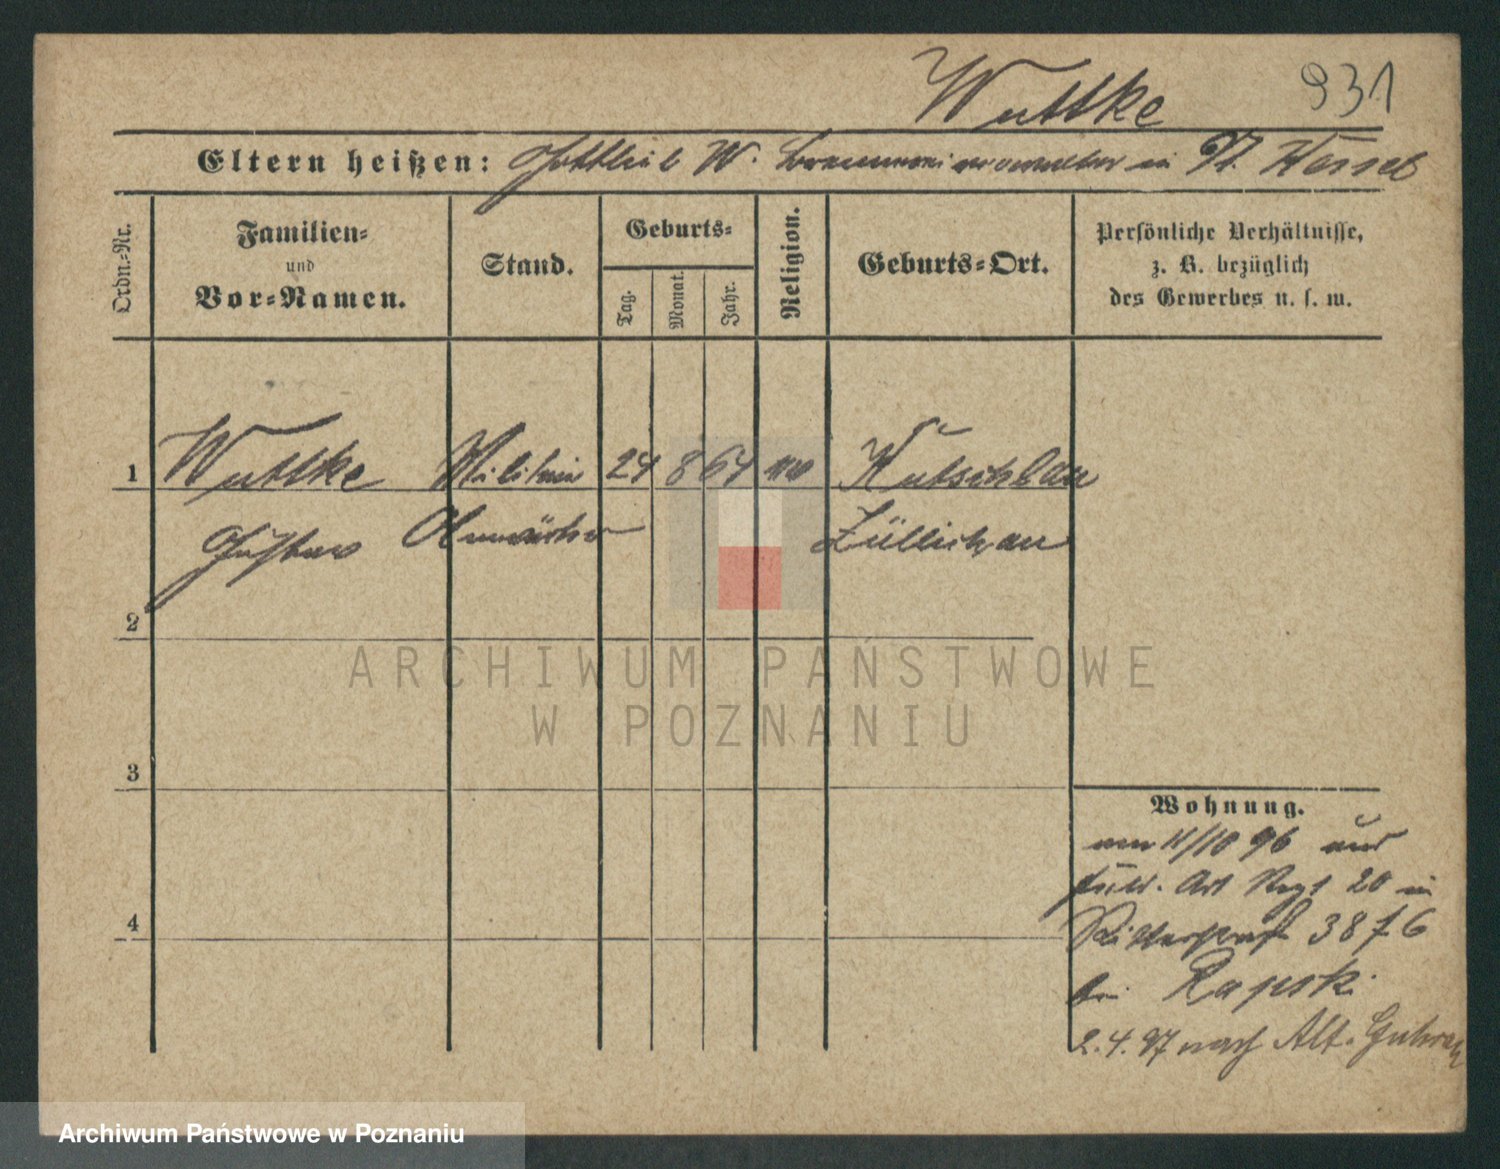 Wuttke 931
Eltern heißen: Gottlieb W. in Kl. Wessel
Ordn.-Nr.
Familien-
und
Vor-Namen.
Stand.
Geburts-
Tag.
Monat.
Jahr.
Religion.
Geburts-Ort.
Persönliche Verhältnisse,
z. B. bezüglich
des Gewerbes u. s. w.
1 Wuttke Militair 24 8 64 Kutschlau
Gustav Anwärter Züllichau
2
3
4
Wohnung.
11/10 96
Art Regt 20 in
Ritterstraße 38
bei Rapski
2.4.97 nach Alt.
ARCHIWUM PAŃSTWOWE
W POZNANIU
Archiwum Państwowe w Poznaniu